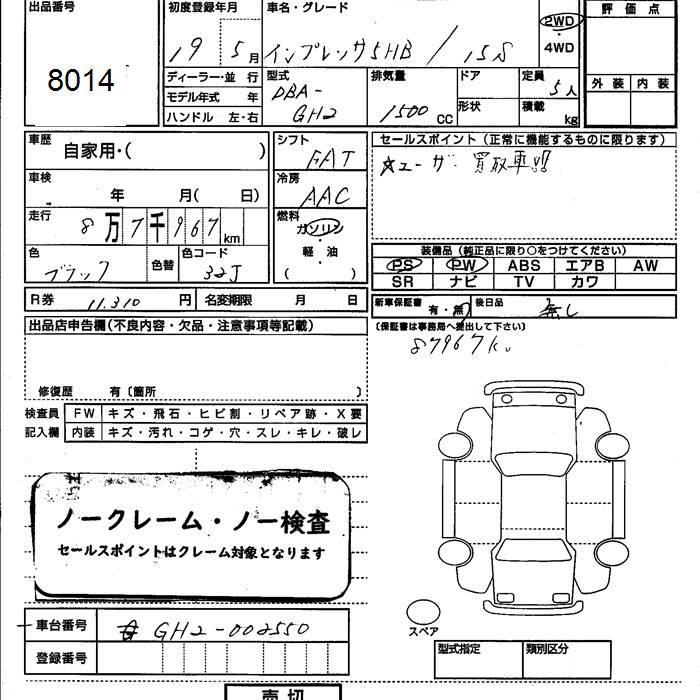 出品番号
8014
初度登録年月
19 5月
車名・グレード
インプレッサ5HB / 15S
2WD
・
4WD
評価点
外装 内装
ディーラー・並行
モデル年式 年
ハンドル 左・右
型式
DBA-
GH2
排気量
1500 CC
ドア
形状
定員
5人
積載
kg
車歴
自家用・( )
車検
年 月( 日)
走行
8万7千967km
色
ブラック
色替
色コード
32J
シフト
FAT
冷房
AAC
燃料
ガソリン
軽・油
( )
セールスポイント(正常に機能するものに限ります)
☆ユーザー買取車!!
装備品(純正品に限り○をつけてください)
PS PW ABS エアB AW
SR ナビ TV カワ
R券 11,310円
名変期限 月 日
新車保証書 有・無
後日品 無し
(保証書は事務局へ提出して下さい)
87967k
出品店申告欄(不良内容・欠品・注意事項等記載)
修復歴 有〔箇所 〕
検査員
記入欄
FW キズ・飛石・ヒビ割・リペア跡・X要
内装 キズ・汚れ・コゲ・穴・スレ・キレ・破レ
ノークレーム・ノー検査
セールスポイントはクレーム対象となります
車台番号
GH2-002550
登録番号
スペア
型式指定 類別区分
売切